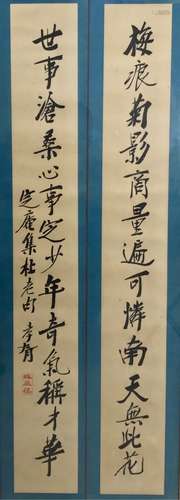 梅痕菊影商量遍可憐南天無此花
世事滄桑心事定少年奇氣稱才華
定庵集